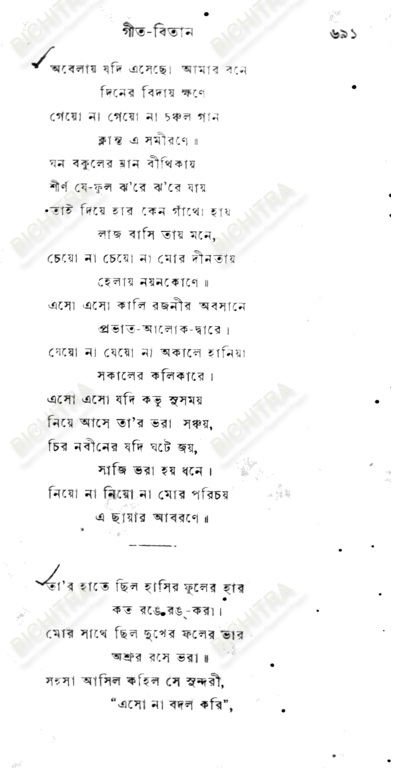 গীত-বিতান ৬৯১
অবেলায় যদি এসেছো আমার বনে
দিনের বিদায় ক্ষণে
গেয়ো না গেয়ো না চঞ্চল গান
ক্লান্ত এ সমীরণে॥
ঘন বকুলের ম্লান বীথিকায়
শীর্ণ যে-ফুল ঝ'রে ঝ'রে যায়
তাই দিয়ে হার কেন গাঁথো হায়
লাজ বাসি তায় মনে,
চেয়ো না চেয়ো না মোর দীনতায়
হেলায় নয়নকোণে॥
এসো এসো কালি রজনীর অবসানে
প্রভাত-আলোক-দ্বারে।
যেয়ো না যেয়ো না অকালে হানিয়া
সকালের কলিকারে।
এসো এসো যদি কভু সুসময়
নিয়ে আসে তা'র ভরা সঞ্চয়,
চির নবীনের যদি ঘটে জয়,
সাজি ভরা হয় ধনে।
নিয়ো না নিয়ো না মোর পরিচয়
এ ছায়ার আবরণে॥
তা'র হাতে ছিল হাসির ফুলের হার
কত রঙে রঙ-করা।
মোর সাথে ছিল দুখের ফলের ভার
অশ্রুর রসে ভরা॥
সহসা আসিল কহিল সে সুন্দরী,
"এসো না বদল করি",
BICHITRA